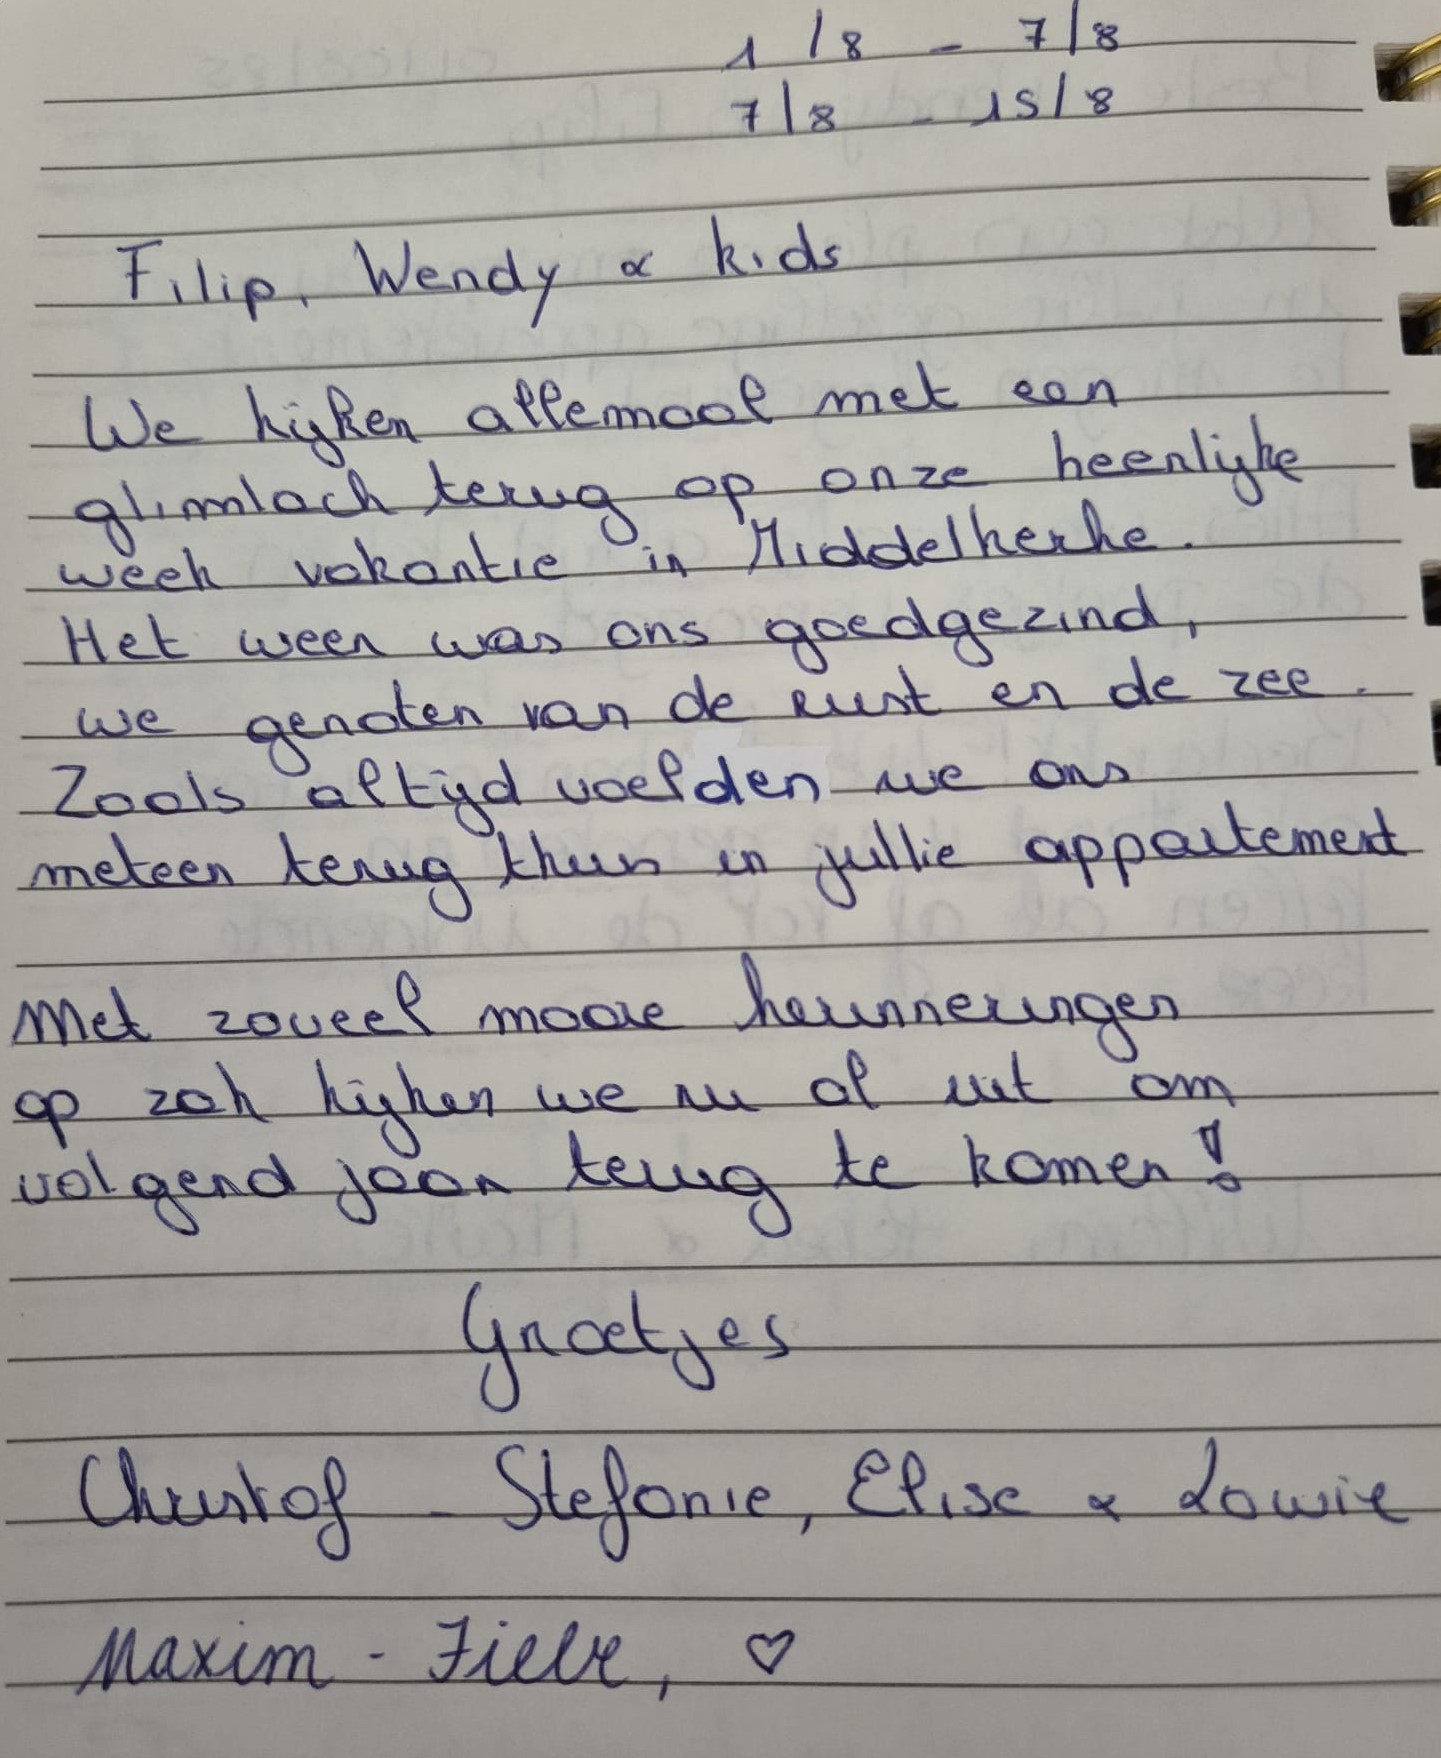 1/8 - 7/8
7/8 - 15/8
Filip, Wendy & kids
We kijken allemaal met een
glimlach terug op onze heerlijke
week vakantie in Middelkerke.
Het weer was ons goedgezind,
we genoten van de rust en de zee.
Zoals altijd voelden we ons
meteen terug thuis in jullie appartement
Met zoveel mooie herinneringen
op zak kijken we nu al uit om
volgend jaar terug te komen!
Groetjes
Christof - Stefanie, Elise & Lowie
Maxim -
♡